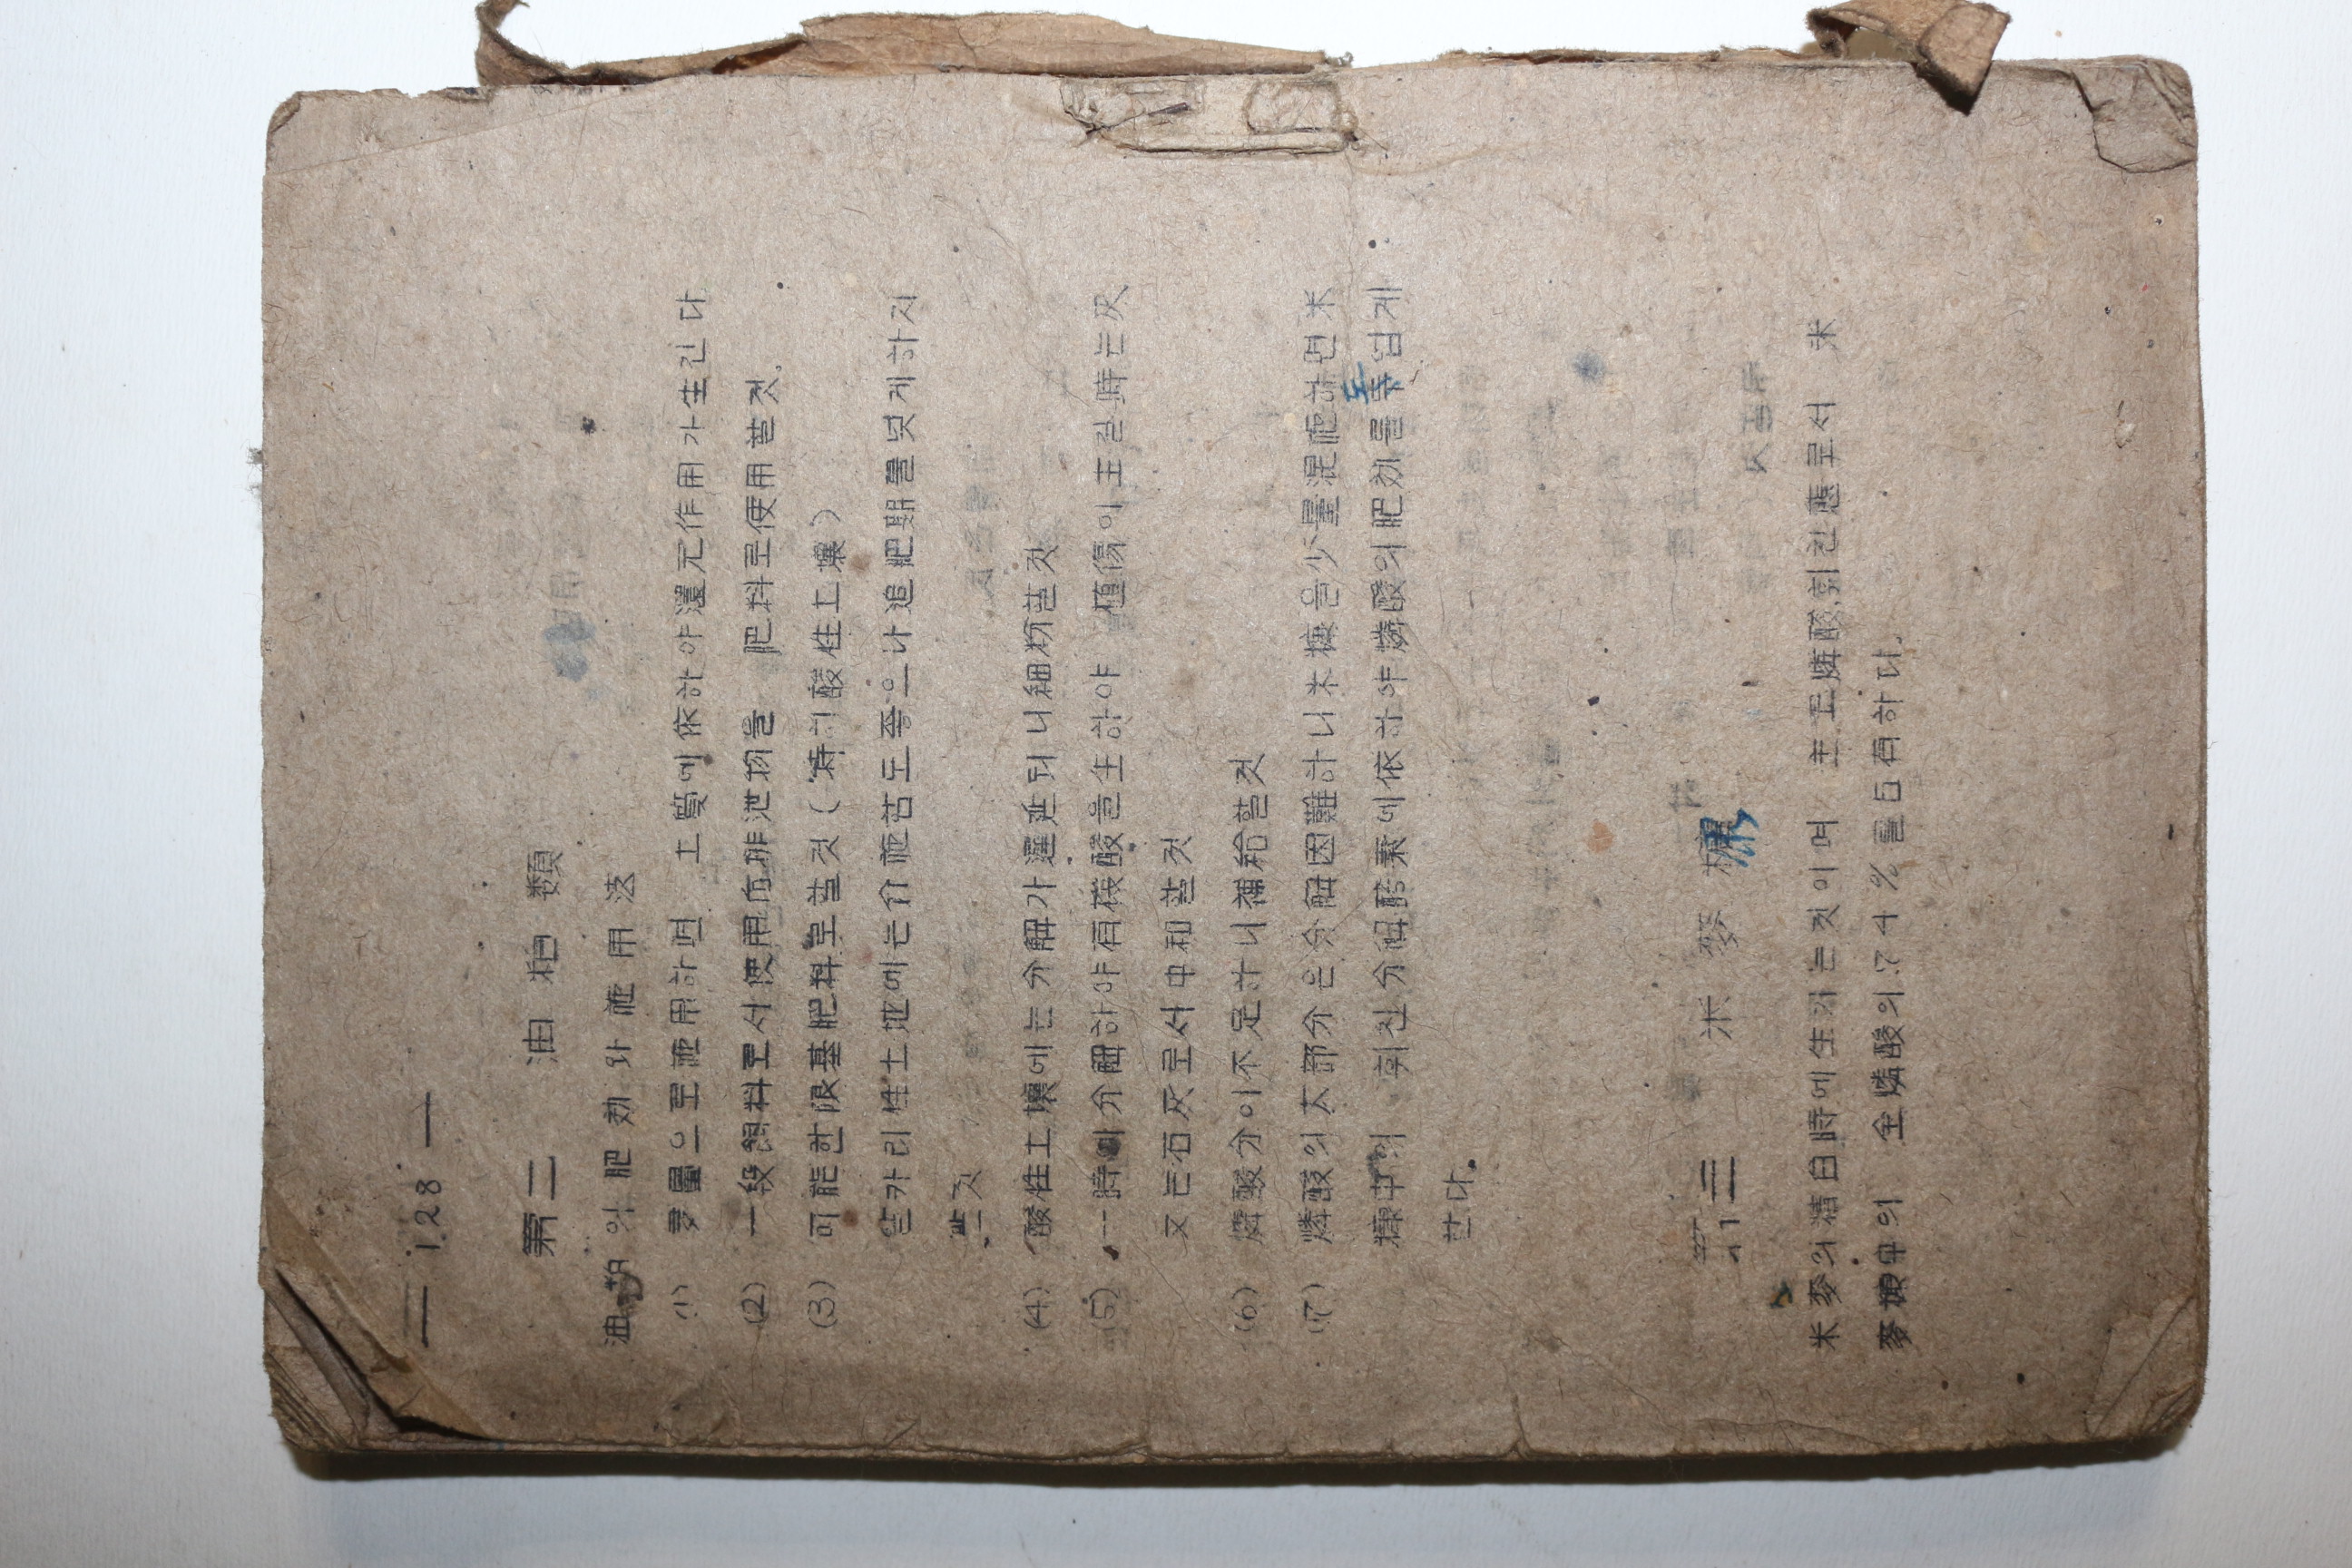 — 128 —
第二 油粕類
油粕의 肥効와 施用法
(1) 多量으로 施用하면 土壤에 依하야 還元作用가 生긴다
(2) 一般飼料로서 使用后 排泄物을 肥料로 使用할것.
(3) 可能한限 基肥料로 할것 (特히 酸性土壤)
알카리性土地에는 介施苦도 좋으나 追肥期를 늦게하지
말것
(4) 酸性土壤에는 分解가 遲延되니 細粉할것
(5) 一時에 分解하야 有機酸을 生하야 植傷이 土질時는 灰
又는 石灰로서 中和할것
(6) 燐酸分이 不足하니 補給할것
(7) 燐酸의 大部分은 分解困難하니 米糠을 少量混施하면 米
糠中의 휘친分解酵素에 依하야 燐酸의 肥効를 돕게
한다.
第三 米麥糠
米麥의 精白時에 生기는것이며 主로 燐酸 휘친態로서 米
麥糠中의 全燐酸의 74%를 占有하다.